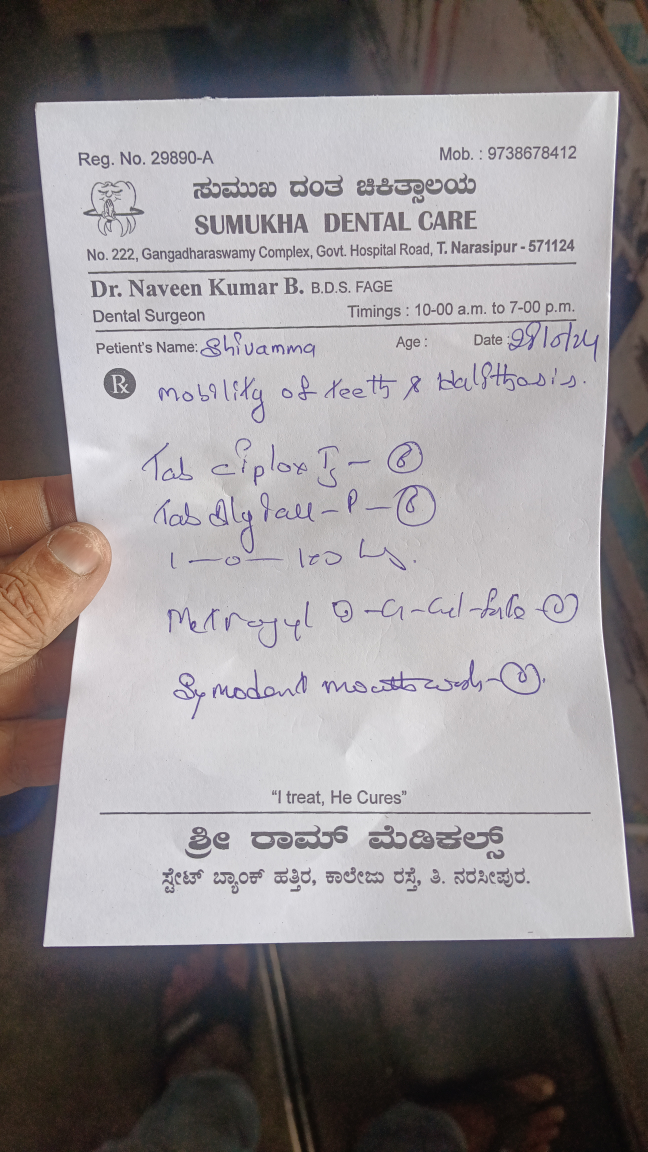 Reg. No. 29890-A
Mob. : 9738678412
ಸುಮುಖ ದಂತ ಚಿಕಿತ್ಸಾಲಯ
SUMUKHA DENTAL CARE
No. 222, Gangadharaswamy Complex, Govt. Hospital Road, T. Narasipur - 571124
Dr. Naveen Kumar B. B.D.S. FAGE
Dental Surgeon
Timings : 10-00 a.m. to 7-00 p.m.
Petient's Name: Shivamma Age : Date :
Rx
Mobility of teeth &
Tab ciplox - 6
Tab - P - 6
1 - 0 - 1
Metrogyl - Gel
Symodent mouth wash -
"I treat, He Cures"
ಶ್ರೀ ರಾಮ್ ಮೆಡಿಕಲ್ಸ್
ಸ್ಟೇಟ್ ಬ್ಯಾಂಕ್ ಹತ್ತಿರ, ಕಾಲೇಜು ರಸ್ತೆ, ತಿ. ನರಸೀಪುರ.